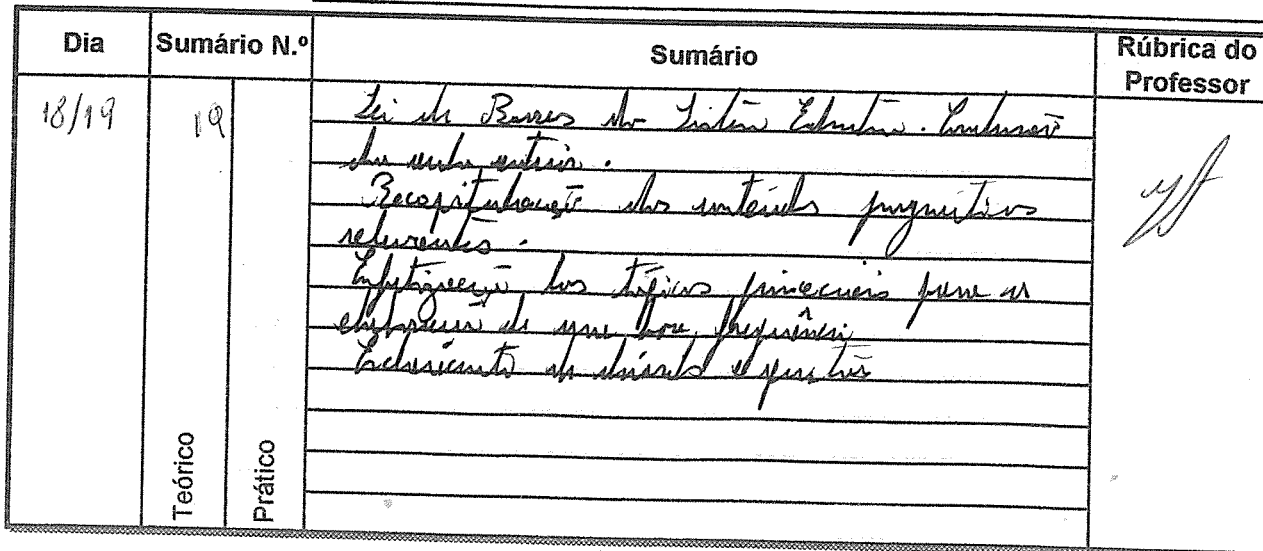 Dia
Sumário N.º
Sumário
Rúbrica do
Professor
18/19
19
Lei de Bases do Sistema Educativo. Conclusão
da aula anterior.
Recapitulação dos conteúdos programáticos
referentes.
Enfatização dos tópicos principais para a
elaboração de uma boa frequência
Esclarecimento de dúvidas e questões
Teórico
Prático